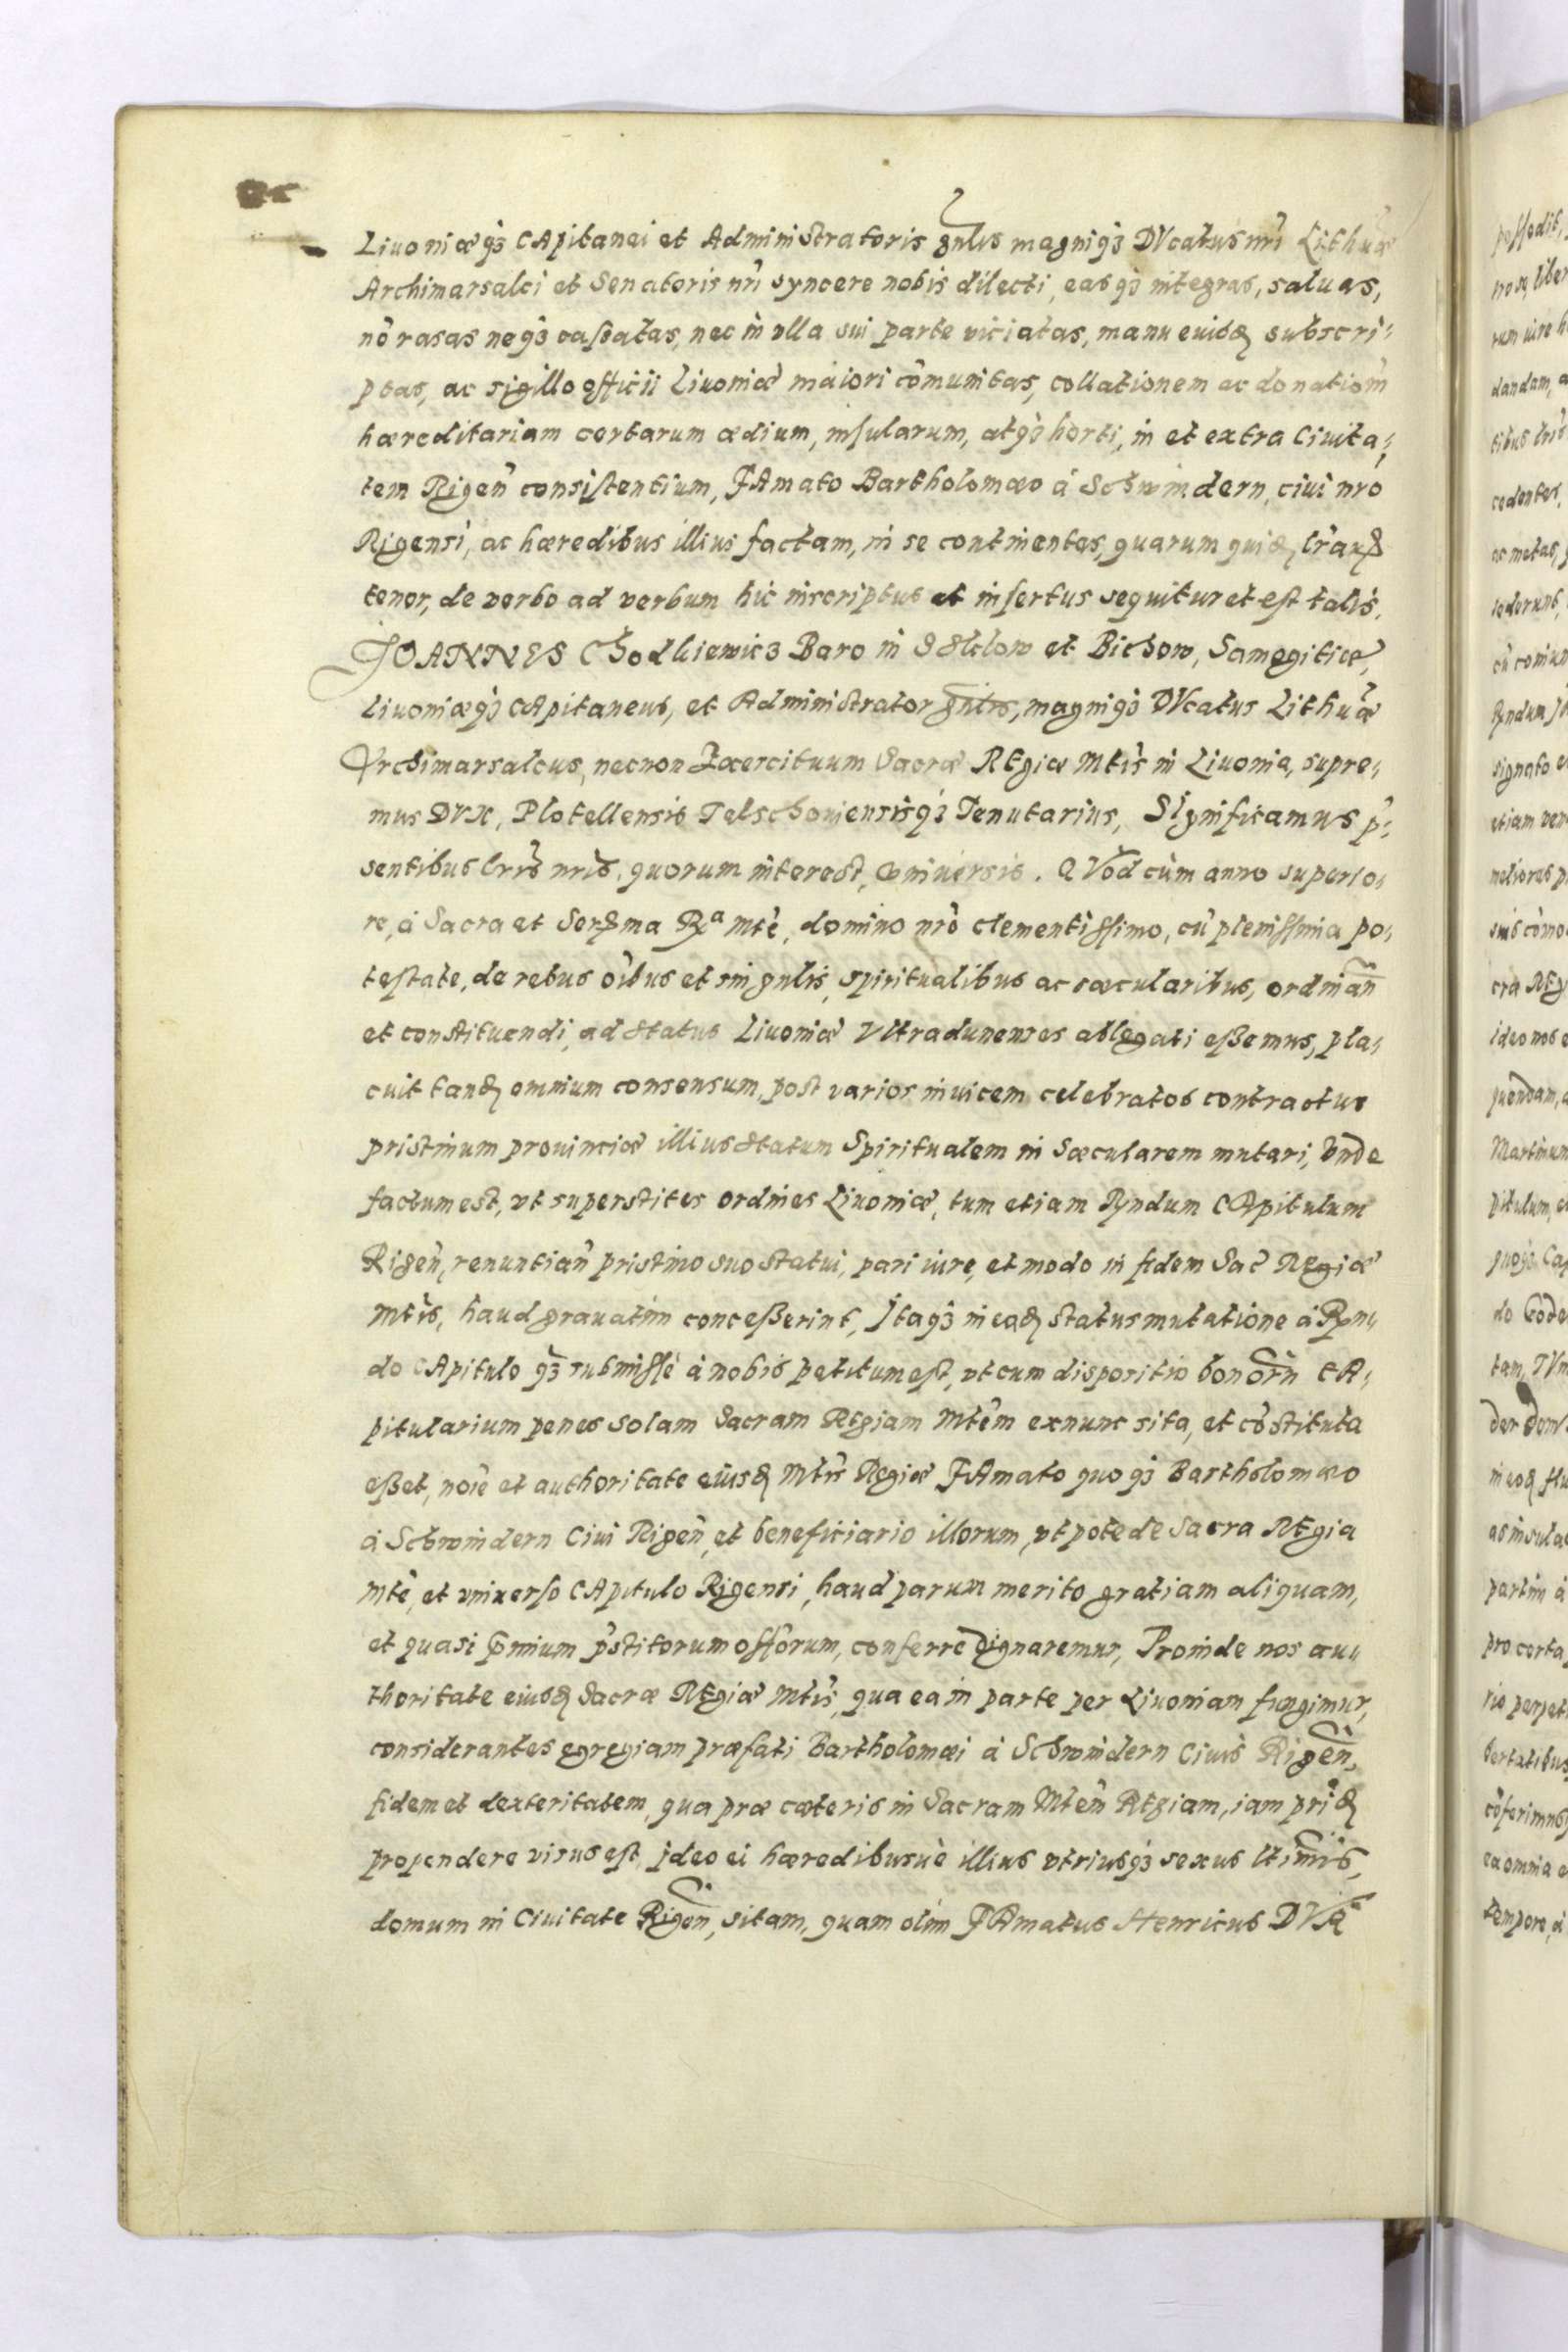 Liuoniæq́₃ CApitanei et Administratoris gnlis magniq́₃ DVcatus nr̃i Lithuæ̃
Archimarsalci et Senatoris nr̃i syncere nobis dilecti, easq́₃ integras, saluas,
nō rasas neq́₃ caſsatas, nec in vlla sui parte viciatas, manu euisdꝫ subscri,,
ptas, ac sigillo officii Liuoniæ maiori cōmunitas, collationem ac donatiom̃
hæreditariam certarum ædium, inſularum, atq́₃ horti, in et extra Ciuita,,
tem Rigeñ consiſtentium, FAmato Bartholomæo á Schwindern, ciui nr̃o
Rigensi, ac hæredibus illius factam, in se continentes, quarum quidꝫ lr̃arꝫ
tenor, de verbo ad verbum hic inscriptus et inſertus sequitur et eſt talis.
JOANNES Chodkiewicz Baro in Schklow et Bichow, Samogitiæ,
Liuoniæq́₃ CApitaneus, et Administrator gntis, magniq́₃ DVcatus Lithuæ̃
Archimarsalcus, necnon Exercituum Sacræ REgiæ Mtis̃ in Liuonia, supre,,
mus DVX, Plotellensis Telschouiensisq́₃ Tenutarius, SIgnificamus p̃,,
sentibus lrr̃s nris̃, quorum interest, vniuersis. QVod cùm anno superio,,
re, à Sacra et Serꝫma Rᵃ Mtẽ, domino nr̃o clementiſſimo, cũ pleniſſima po,,
teſtate, de rebus oĩbus et singulis, spiritualibus ac sæcularibus, ordinañ
et constituendi, ad status Liuoniæ Vltradunenses ablegati eßemus, pla,,
cuit tandꝫ omnium consensum, post varios inuicem celebratos contractus
pristinum prouinciæ illius statum Spiritualem in Sæcularem mutari, Vnde
factum est, vt superstites ordines Liuoniæ, tum etiam Rndum CApitulum
Rigeñ, renuntiañ pristino suo statui, pari iure, et modo in fidem Sac̃ REgiæ
Mtis̃, haud grauatim conceßerint, Jtaq́₃ in eadꝫ status mutatione à Rn,,
do CApitulo q₃ submiſſè à nobis petitum eſt, vt cum dispositio bonor̃u CA,,
pitularium penes solam Sacram REgiam Mtem̃ exnunc sita, et cōstituta
eßet, noĩe et authoritate eiusdꝫ Mtis̃ Regiæ FAmato quoq́₃ Bartholomæo
á Schwindern Ciui Rigeñ, et beneficiario illorum, vtpote de Sacra REgia
Mtẽ, et vniuerſo CApitulo Rigensi, haud parum merito gratiam aliquam,
et quasi p̃mium p̃stitorum offor̃um, conferre dignaremur, Proinde nos au,,
thoritate eiusdꝫ Sacræ REgiæ Mtis̃, qua ea in parte per Liuoniam fungimur,
considerantes egregiam præfati Bartholomæi á Schwindern Ciuis Rigeñ,
fidem et dexteritatem, qua præ cæteris in Sacram Mtem̃ REgiam, iam pridꝫ
propendere visus eſt, ideo ei hæredibusuè illius vtriusq́₃ sexus ltim̃is,
domum in Ciuitate Rigeñ, sitam, quam olim FAmatus Henricus DVR